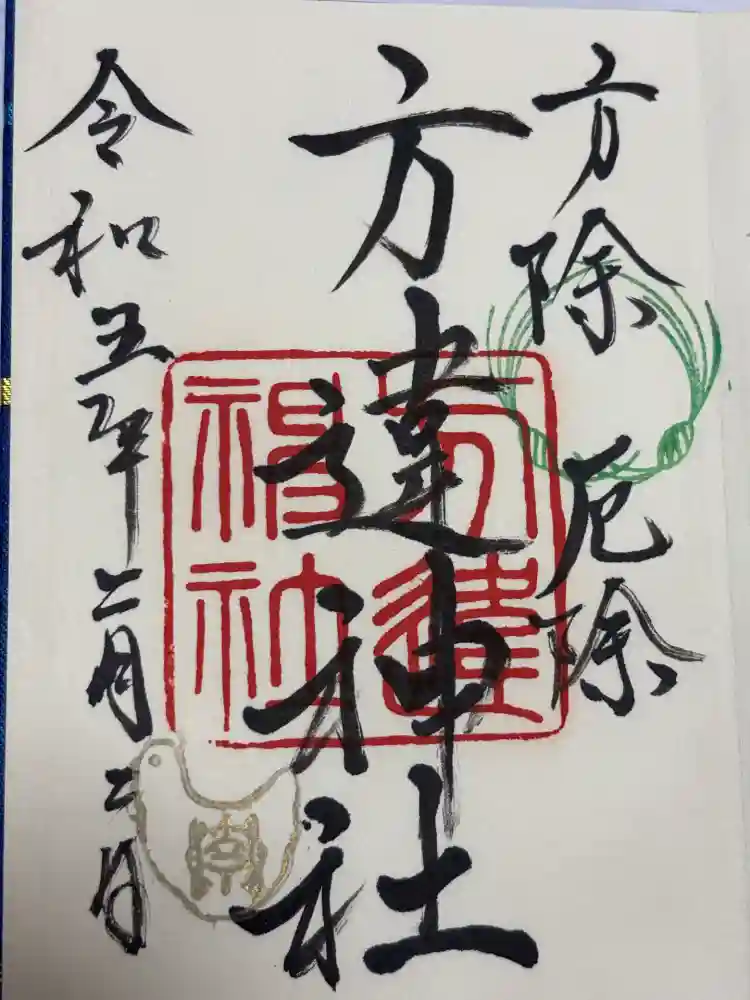 方除 厄除
方違神社
方違神社
令和五年二月二日